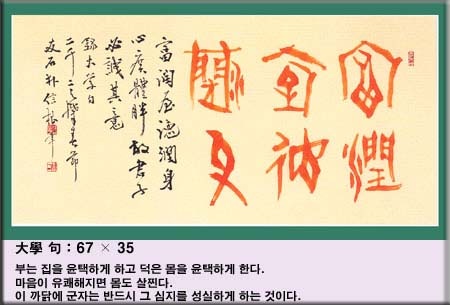 富潤
富潤屋德潤身
心廣體胖 故君子
必誠其意
錄大學句
二千
友石 朴信根
大學 句 : 67 × 35
부는 집을 윤택하게 하고 덕은 몸을 윤택하게 한다.
마음이 유쾌해지면 몸도 살찐다.
이 까닭에 군자는 반드시 그 심지를 성실하게 하는 것이다.